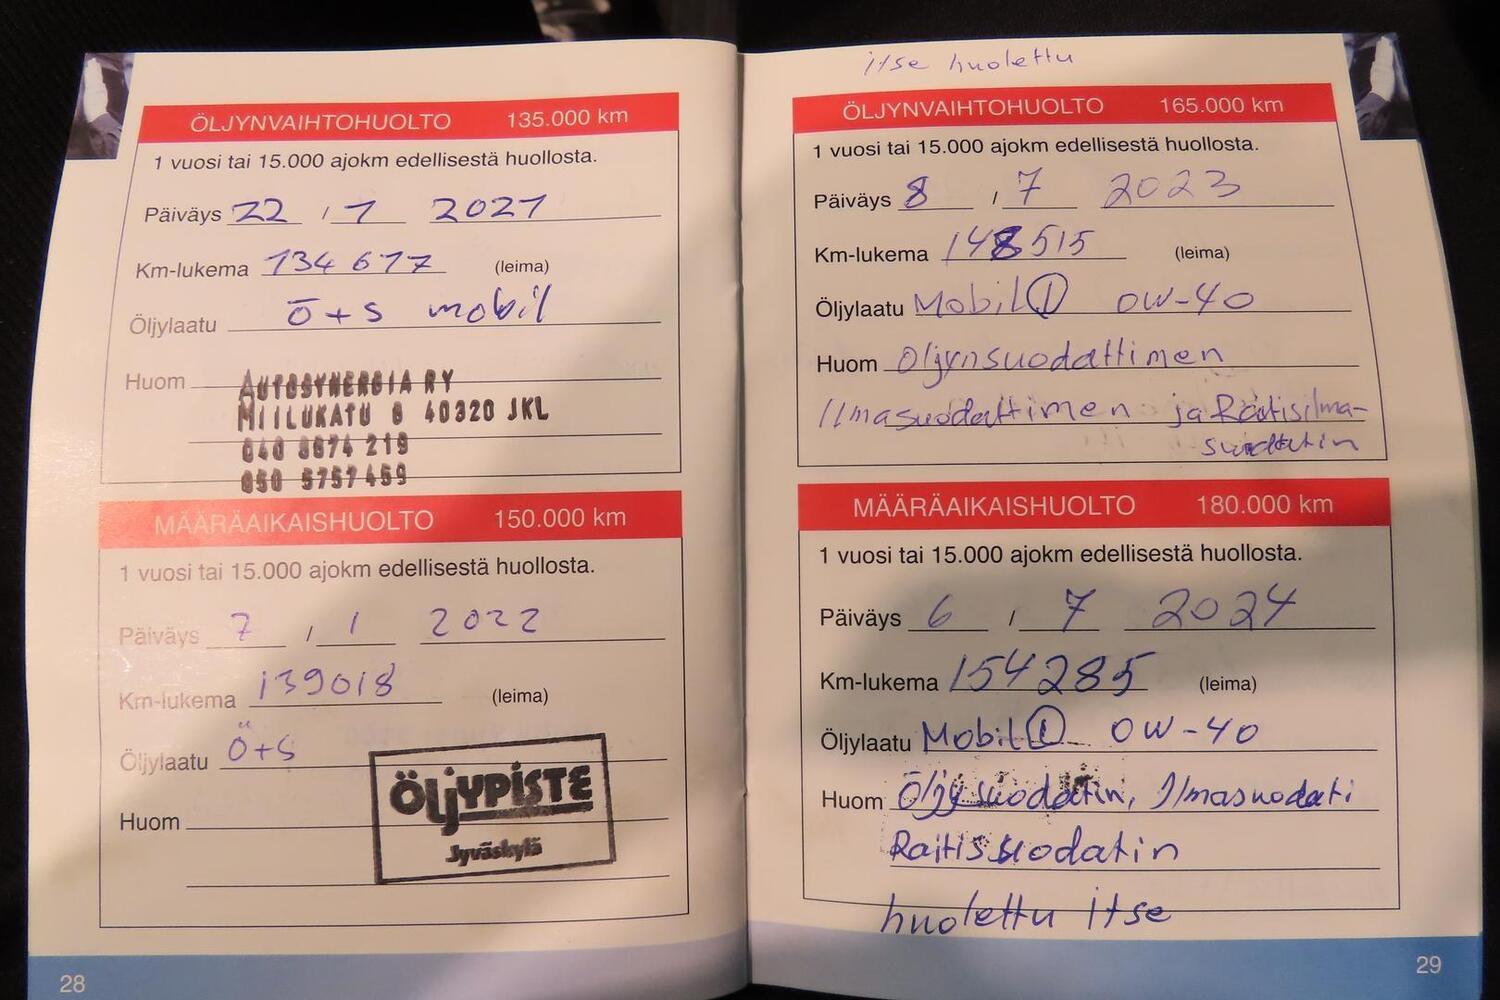 ÖLJYNVAIHTOHUOLTO 135.000 km
1 vuosi tai 15.000 ajokm edellisestä huollosta.
Päiväys 22 / 1 2021
Km-lukema 134 617 (leima)
Öljylaatu ö+s mobil
Huom
AUTOSYNERGIA RY
MIILUKATU 6 40320 JKL
040 8674 219
050 5757 459
MÄÄRÄAIKAISHUOLTO 150.000 km
1 vuosi tai 15.000 ajokm edellisestä huollosta.
Päiväys 7 / 1 2022
Km-lukema 139018 (leima)
Öljylaatu Ö+S
Huom
ÖLJYPISTE
Jyväskylä
28
itse huolettu
ÖLJYNVAIHTOHUOLTO 165.000 km
1 vuosi tai 15.000 ajokm edellisestä huollosta.
Päiväys 8 / 7 2023
Km-lukema 148515 (leima)
Öljylaatu Mobil 1 0W-40
Huom Öljynsuodattimen
Ilmasuodattimen ja Raitisilma-
suodatin
MÄÄRÄAIKAISHUOLTO 180.000 km
1 vuosi tai 15.000 ajokm edellisestä huollosta.
Päiväys 6 / 7 2024
Km-lukema 154285 (leima)
Öljylaatu Mobil 1 0W-40
Huom Öljysuodatin, Ilmasuodati
Raitissuodatin
huolettu itse
29